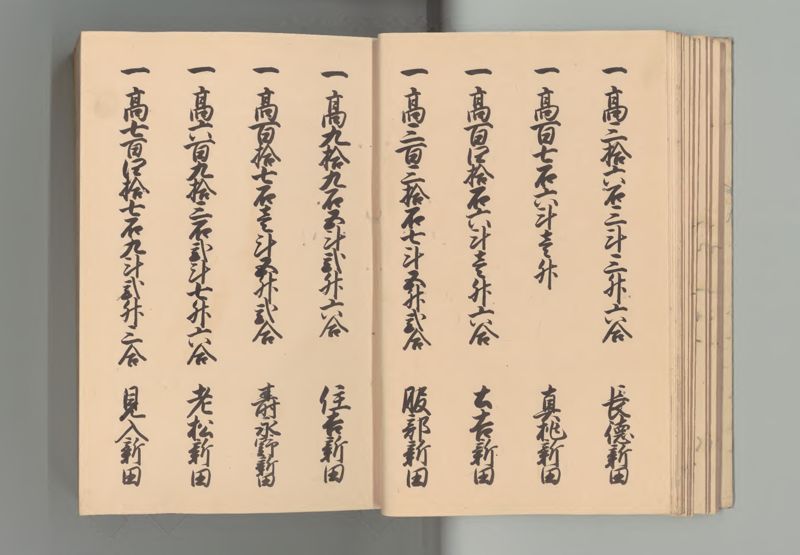 一高三拾六石三斗三升六合 長徳新田
一高百七石六斗壱升 真桃新田
一高百四拾石六斗壱升六合 古新田
一高三百三拾石七斗五升弐合 服部新田
一高九拾九石五斗弐升六合 住吉新田
一高百拾七石壱斗五升弐合 寿永野新田
一高六百九拾三石弐斗七升六合 老松新田
一高七百四拾七石九斗弐升三合 見入新田